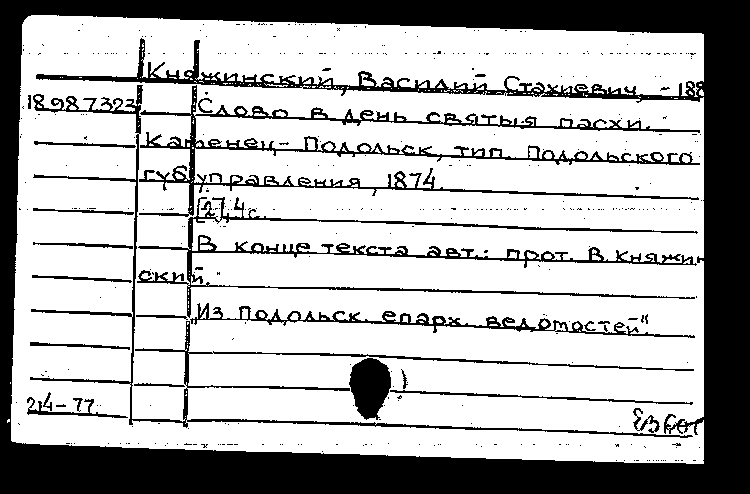 Княжинский, Василий Стахиевич, - 188
18 987323 Слово в день святыя пасхи.
Каменец-Подольск, тип. Подольского
губ. управления, 1874.
[2], 4 с.
В конце текста авт.: прот. В. Княжин
ский.
„Из Подольск. епарх. ведомостей".
214-77